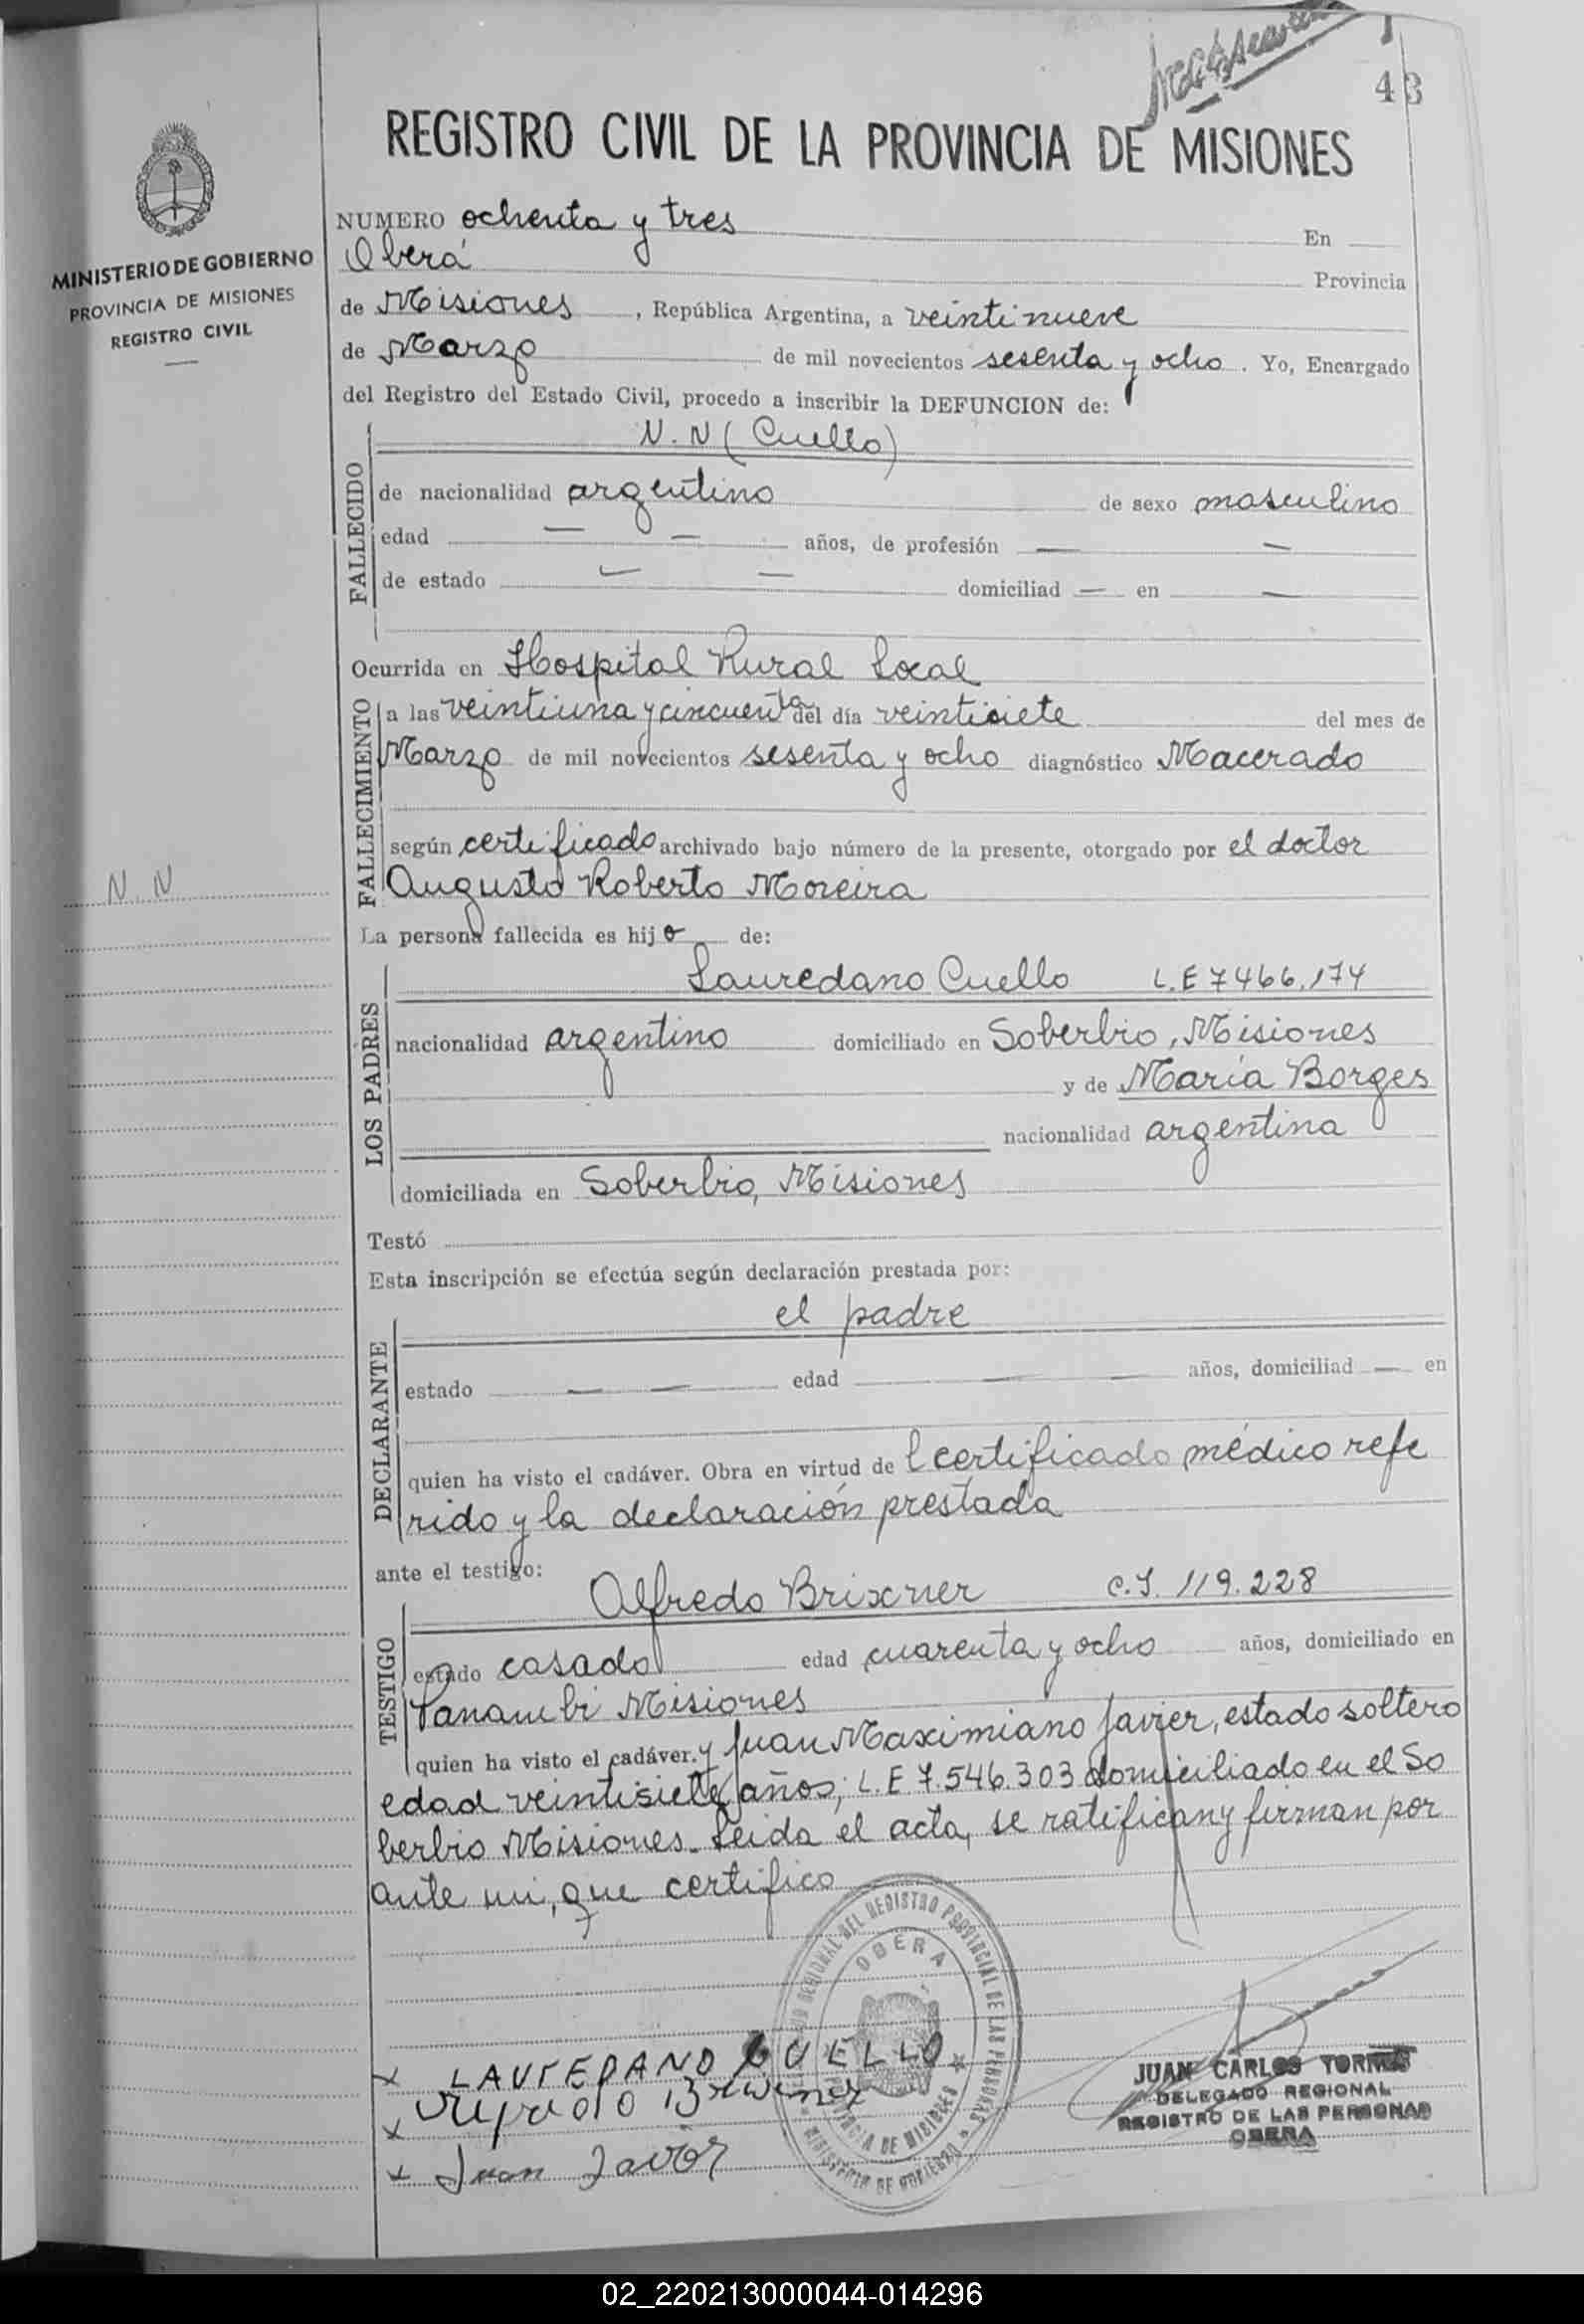 43
REGISTRO CIVIL DE LA PROVINCIA DE MISIONES
MINISTERIO DE GOBIERNO
PROVINCIA DE MISIONES
REGISTRO CIVIL
NUMERO ochenta y tres En
Oberá Provincia
de Misiones, República Argentina, a veintinueve
de Marzo de mil novecientos sesenta y ocho. Yo, Encargado
del Registro del Estado Civil, procedo a inscribir la DEFUNCION de:
FALLECIDO
N. N (Cuello)
de nacionalidad argentino de sexo masculino
edad — — años, de profesión — —
de estado — — domiciliad — en —
Ocurrida en Hospital Rural Local
FALLECIMIENTO
a las veintiuna y cincuenta del día veintisiete del mes de
Marzo de mil novecientos sesenta y ocho diagnóstico Macerado
según certificado archivado bajo número de la presente, otorgado por el doctor
Augusto Roberto Moreira
N. N
La persona fallecida es hijo de:
LOS PADRES
Lauredano Cuello L.E 7466.174
nacionalidad argentino domiciliado en Soberbio, Misiones
y de María Borges
nacionalidad argentina
domiciliada en Soberbio, Misiones
Testó
Esta inscripción se efectúa según declaración prestada por:
DECLARANTE
el padre
estado — — edad — — años, domiciliad — en
quien ha visto el cadáver. Obra en virtud de l certificado médico refe
rido y la declaración prestada
ante el testigo:
TESTIGO
Alfredo Brixner C.I. 119.228
estado casado edad cuarenta y ocho años, domiciliado en
Panambi Misiones
quien ha visto el cadáver. y Juan Maximiano Javier, estado soltero
edad veintisiete años, L.E 7.546.303 domiciliado en el So
berbio Misiones. Leida el acta, se ratifican y firman por
ante mi, que certifico
OBERA
PROVINCIA DE MISIONES
MINISTERIO DE GOBIERNO
x LAUREDANO CUELLO
x Alfredo Brixner
x Juan Javier
JUAN CARLOS TORRES
DELEGADO REGIONAL
REGISTRO DE LAS PERSONAS
OBERA
02_220213000044-014296